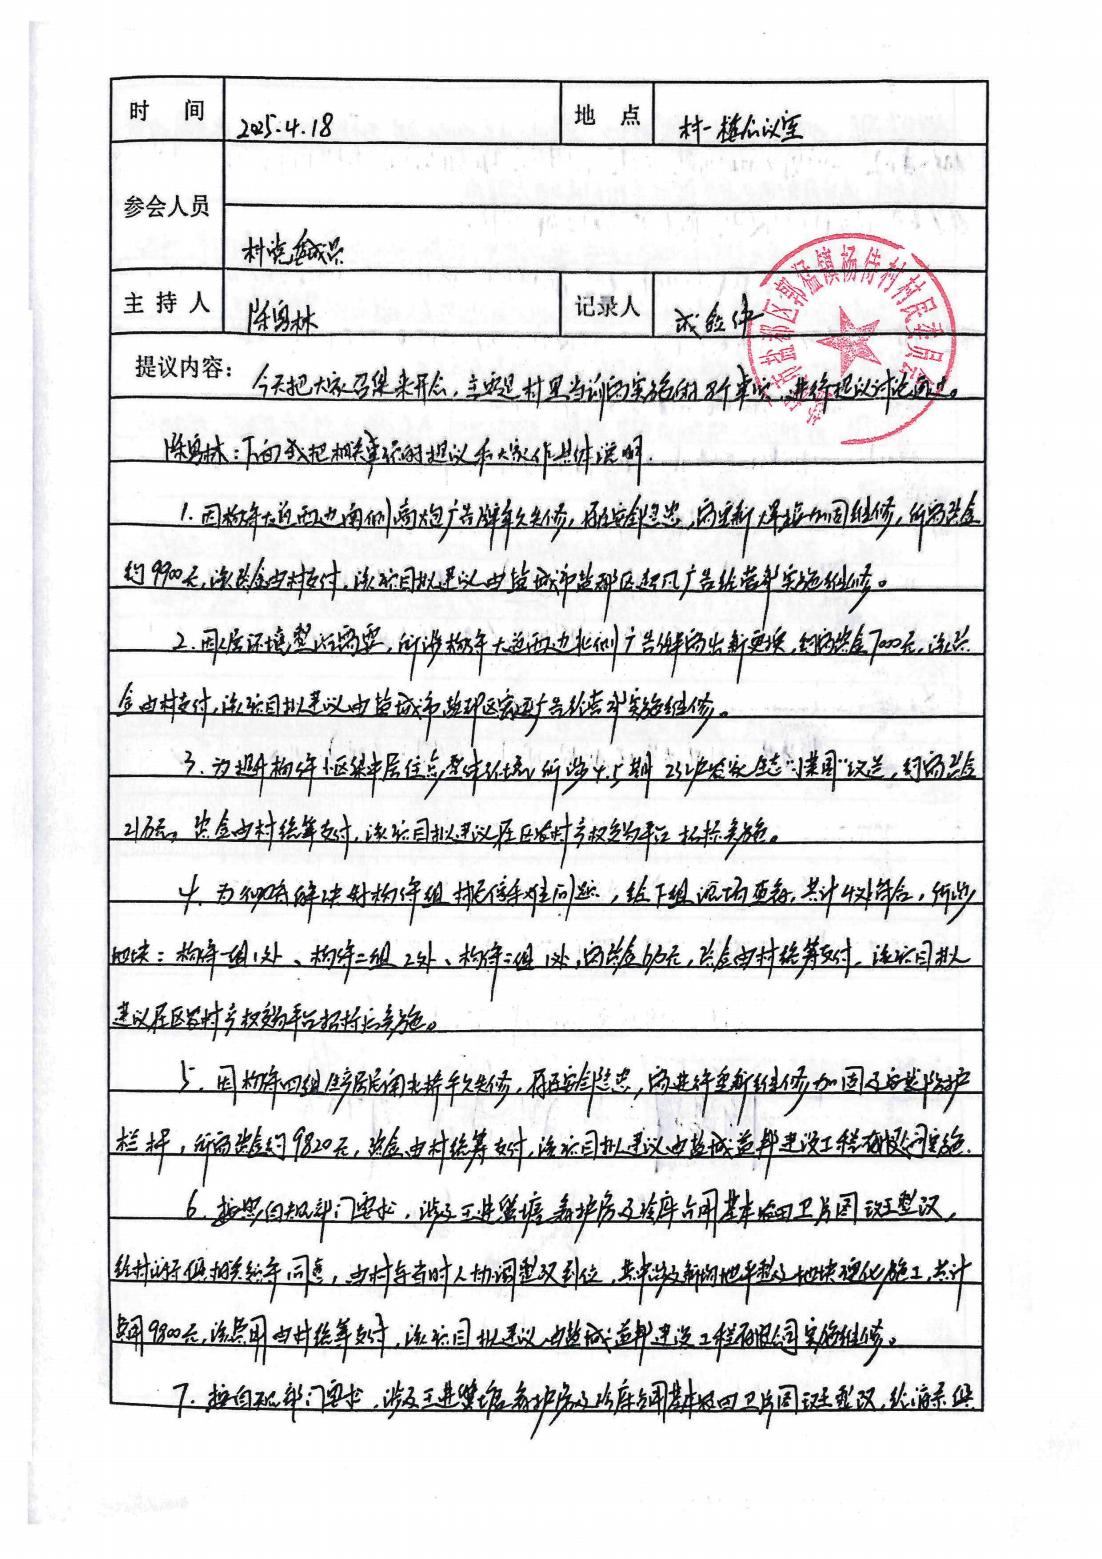 时 间 2025.4.18 地 点 村一楼会议室
参会人员
村党总成员
主持人 陈勇林 记录人
盐都区郭猛镇杨侍村村民委员会
提议内容：今天把大家召集来开会，主要是村里当前需实施的 事项，进行提议讨论通过。
陈勇林：下面我把相关事项的提议和大家作具体说明.
1. 因杨侍大道西边南侧高炮广告牌年久失修，存在安全隐患，需重新焊接加固维修，所需资金
约9900元，该资金由村支付，该项目拟建议由盐城市盐都区 广告经营部实施维修。
2. 因人居环境整治需要，所涉杨侍大道西边北侧广告牌需出新更换，约需资金7000元，该资
金由村支付，该项目拟建议由盐城市盐都区 广告经营部实施维修。
3. 为提升杨侍小区集中居住点整体环境，所涉4.5期 23户农家生态"小菜园"改造，约需资金
21万元。资金由村统筹支付，该项目拟建议在区农村产权交易平台招标实施。
4. 为彻底解决好构侍组 问题，经下组现场查看，共计4处 ，所涉
地块：构侍一组1处、构侍二组2处、构侍三组1处，需资金6万元，资金由村统筹支付，该项目拟
建议在区农村产权交易平台招标后实施。
5. 因构侍四组 居南北桥年久失修，存在安全隐患，需进行重新维修加固及安装防护
栏杆，所需资金约9820元，资金由村统筹支付，该项目拟建议由盐城益邦建设工程有限公司实施.
6. 按照自规部门要求，涉及王进蟹塘看护房及冷库占用基本农田卫片图斑整改，
经村 相关 同意，由村与当时人协调整改到位，其中涉及 地平整及地块硬化施工，共计
费用9800元，该费用由村统筹支付，该项目拟建议由盐城益邦建设工程有限公司实施维修。
7. 按自规部门要求，涉及王进蟹塘看护房及冷库占用基本农田卫片图斑整改，经